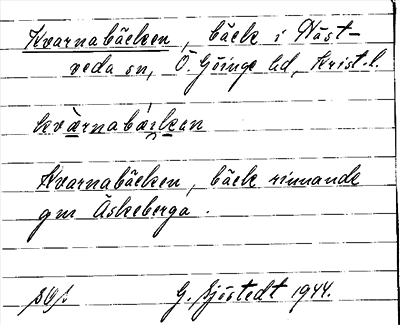 Kvarnabäcken, bäck i Näst-
veda sn, Ö. Göinge hd, Krist.l.
kvàrnabäcken
Kvarnabäcken, bäck rinnande
gm Äskeberga.
G. Sjöstedt 1944.